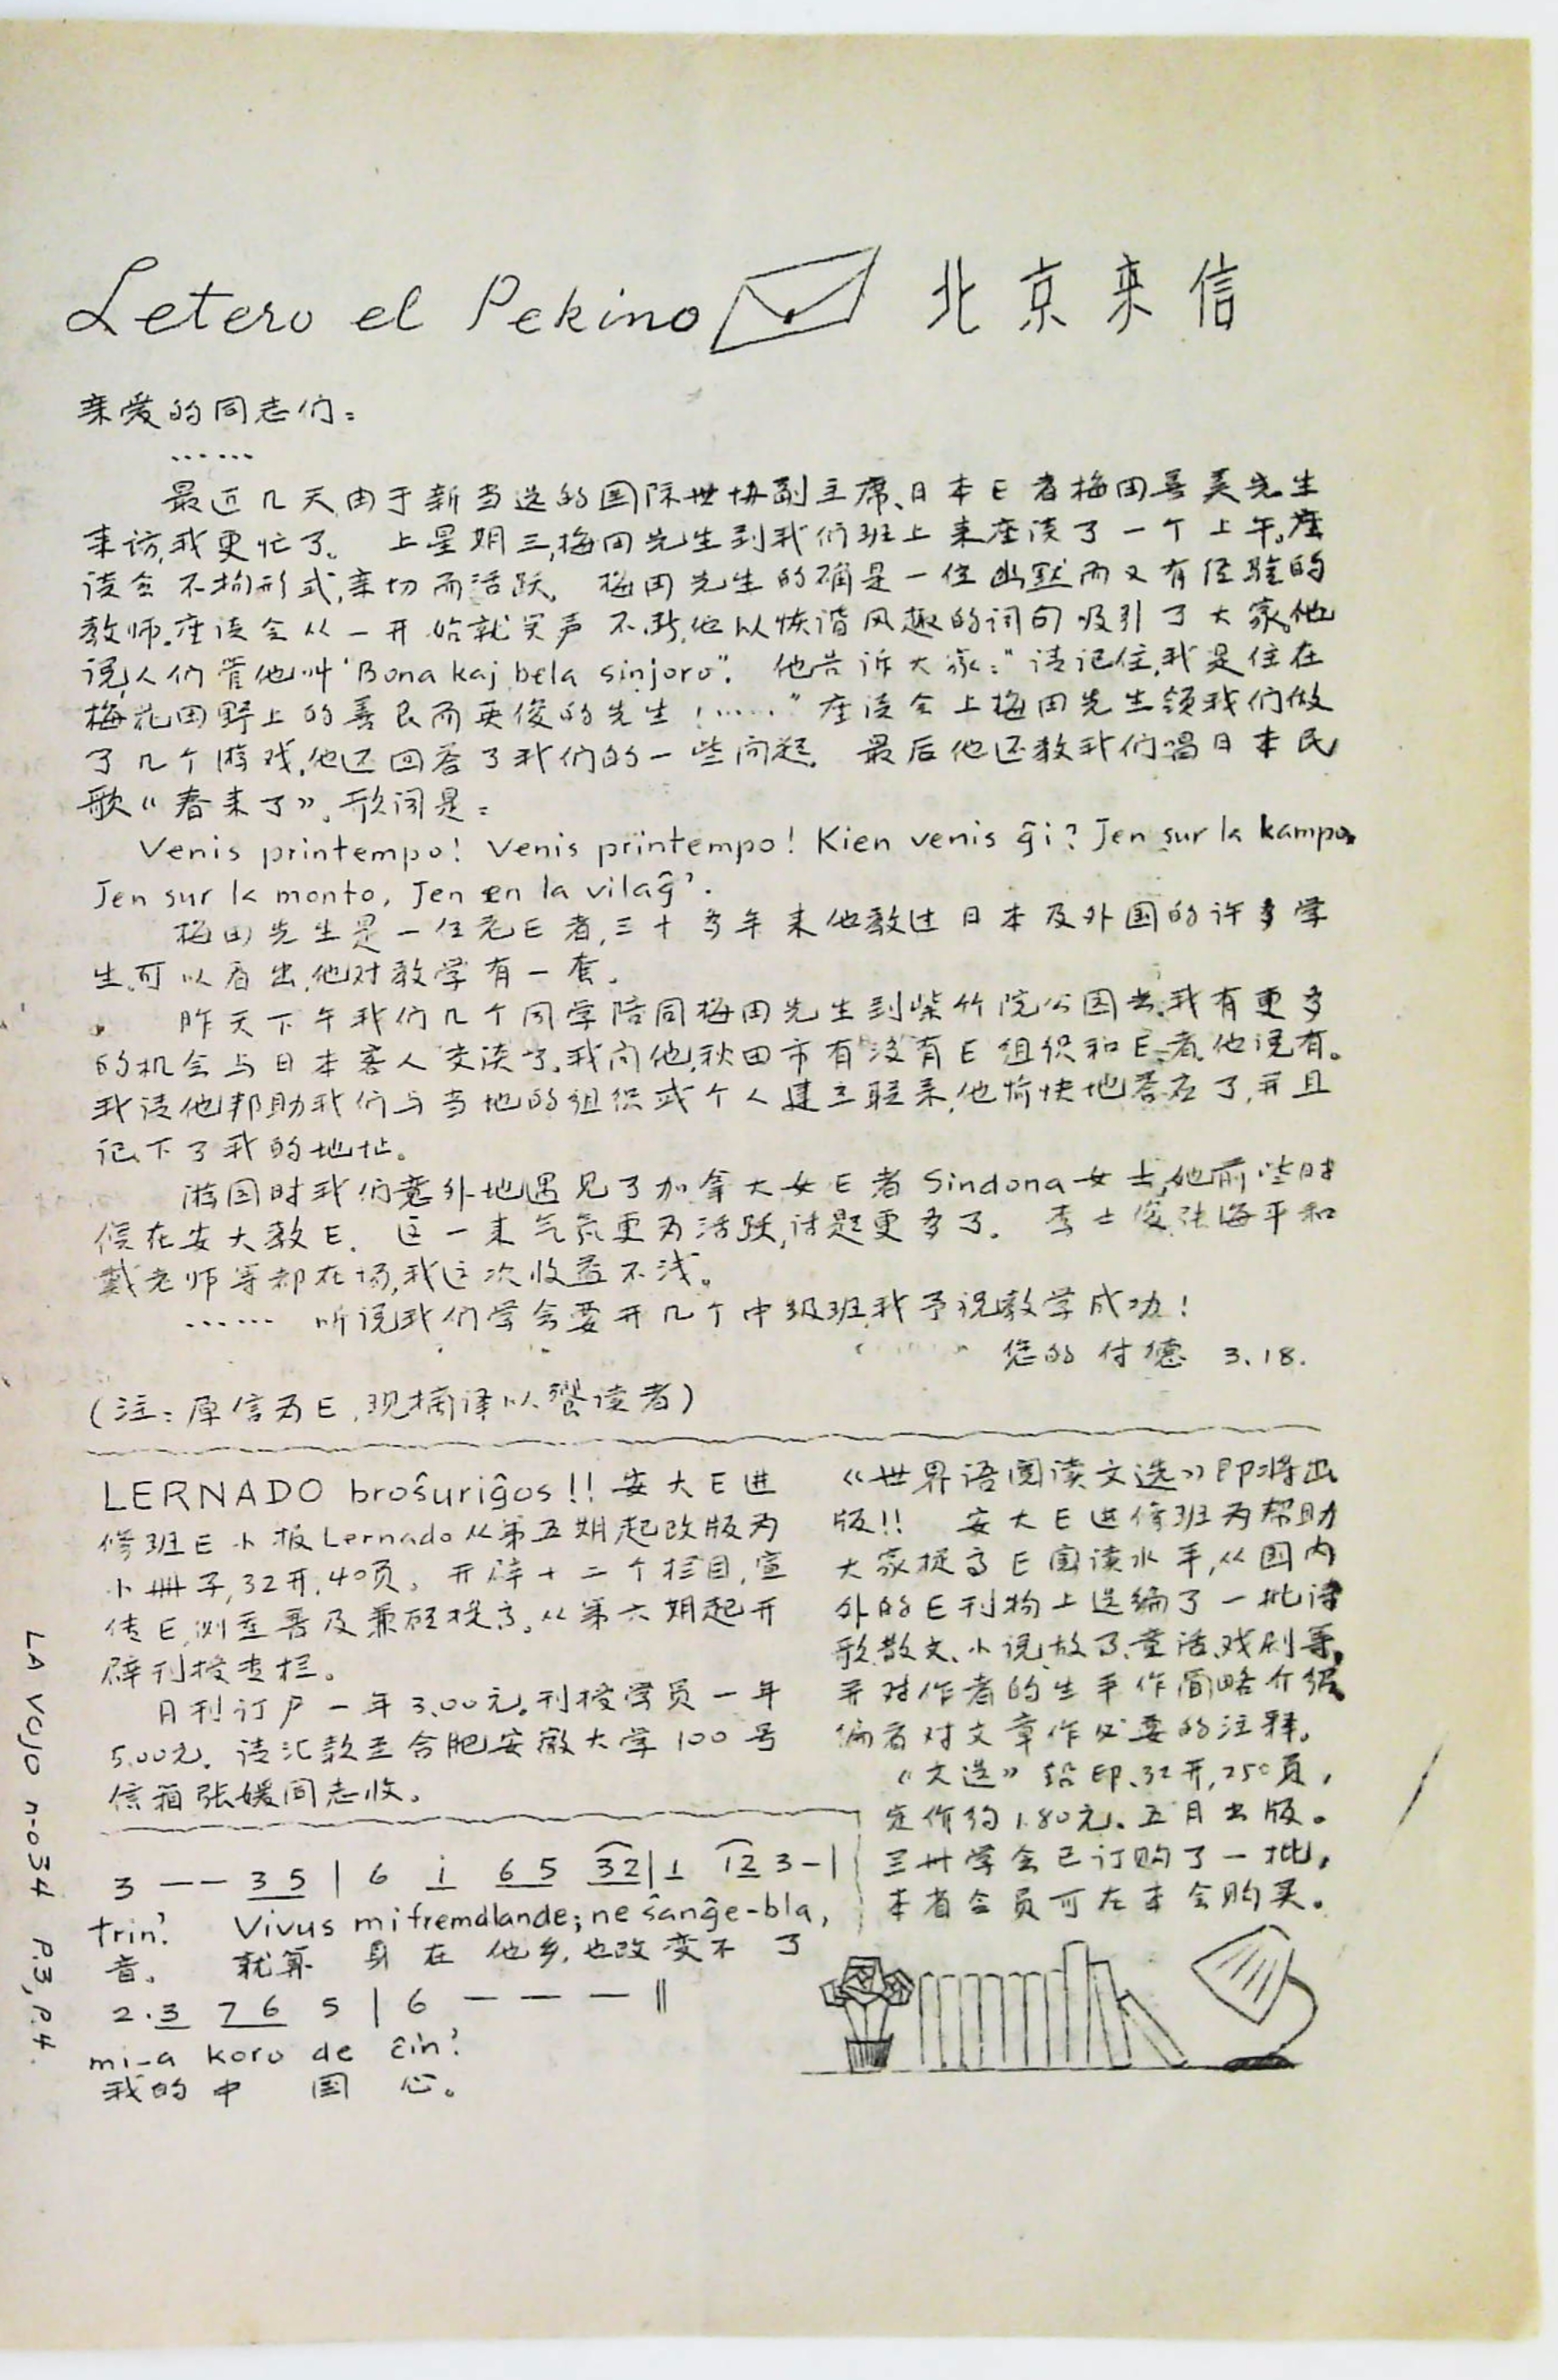 Letero el Pekino 北京来信
亲爱的同志们：
……
最近几天由于新当选的国际世协副主席、日本E者梅田善美先生
来访,我更忙了。上星期三,梅田先生到我们班上来座谈了一个上午。座
谈会不拘形式,亲切而活跃。梅田先生的确是一位幽默而又有经验的
教师.座谈会从一开始就笑声不断,他以恢谐风趣的词句吸引了大家。他
说人们管他叫“Bona kaj bela sinjoro”. 他告诉大家：“请记住,我是住在
梅花田野上的善良而英俊的先生！……”座谈会上梅田先生领我们做
了几个游戏,他还回答了我们的一些问题。最后他还教我们唱日本民
歌《春来了》。歌词是：
Venis printempo! Venis printempo! Kien venis ĝi? Jen sur la kampo,
Jen sur la monto, Jen en la vilaĝ'.
梅田先生是一位老E者,三十多年来他教过日本及外国的许多学
生,可以看出,他对教学有一套。
昨天下午我们几个同学陪同梅田先生到紫竹院公园去,我有更多
的机会与日本客人交谈了。我问他,秋田市有没有E组织和E者,他说有。
我请他邦助我们与当地的组织或个人建立联系,他愉快地答应了,并且
记下了我的地址。
游园时我们意外地遇见了加拿大女E者Sindona女士,她前些时
候在安大教E. 这一来气氛更为活跃,话题更多了。李士俊,张海平和
戴老师等都在场,我这次收益不浅。
…… 听说我们学会要开几个中级班,我予祝教学成功！
您的 付德 3.18.
(注：原信为E,现摘译以飨读者)
LERNADO broŝuriĝos!! 安大E进
修班E小报Lernado从第五期起改版为
小册子,32开,40页。开辟十二个栏目,宣
传E,侧重普及兼顾提高。从第六期起开
辟刊授专栏。
月刊订户一年3.00元。刊授学员一年
5.00元. 请汇款至合肥安徽大学100号
信箱张媛同志收。
《世界语阅读文选》即将出
版!! 安大E进修班为帮助
大家提高E阅读水平,从国内
外的E刊物上选编了一批诗
歌、散文、小说、故事、童话、戏剧等,
并对作者的生平作简略介绍,
编者对文章作必要的注释。
《文选》铅印、32开,250页,
定价约1.80元、五月出版。
兰州学会已订购了一批,
本省会员可在本会购买。
3 — — 3 5 | 6 i 6 5 32 | 1 12 3 — |
trin'. Vivus mi fremdlande; ne ŝanĝe-bla,
音。就算 身 在 他乡,也改变不 了
2·3 7 6 5 | 6 — — — ‖
mi-a koro de ĉin'.
我的 中 国 心。
LA VOJO n-o34 P.3, P.4.